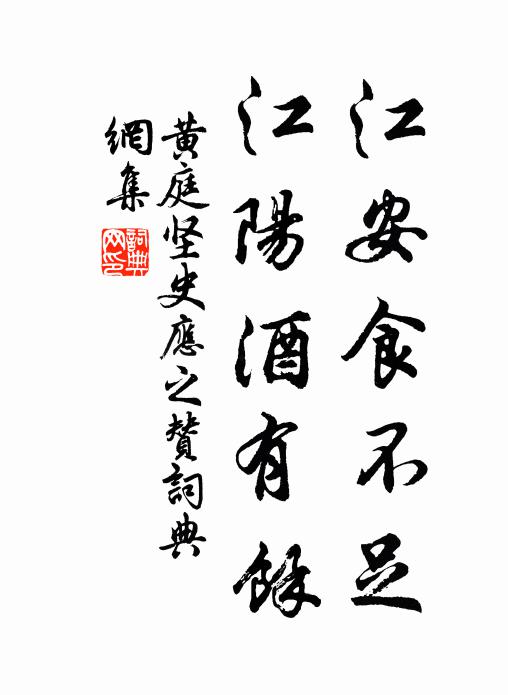 江安食不足
江陽酒有餘
黃庭坚史應之贊詞典
網集
詞典網印